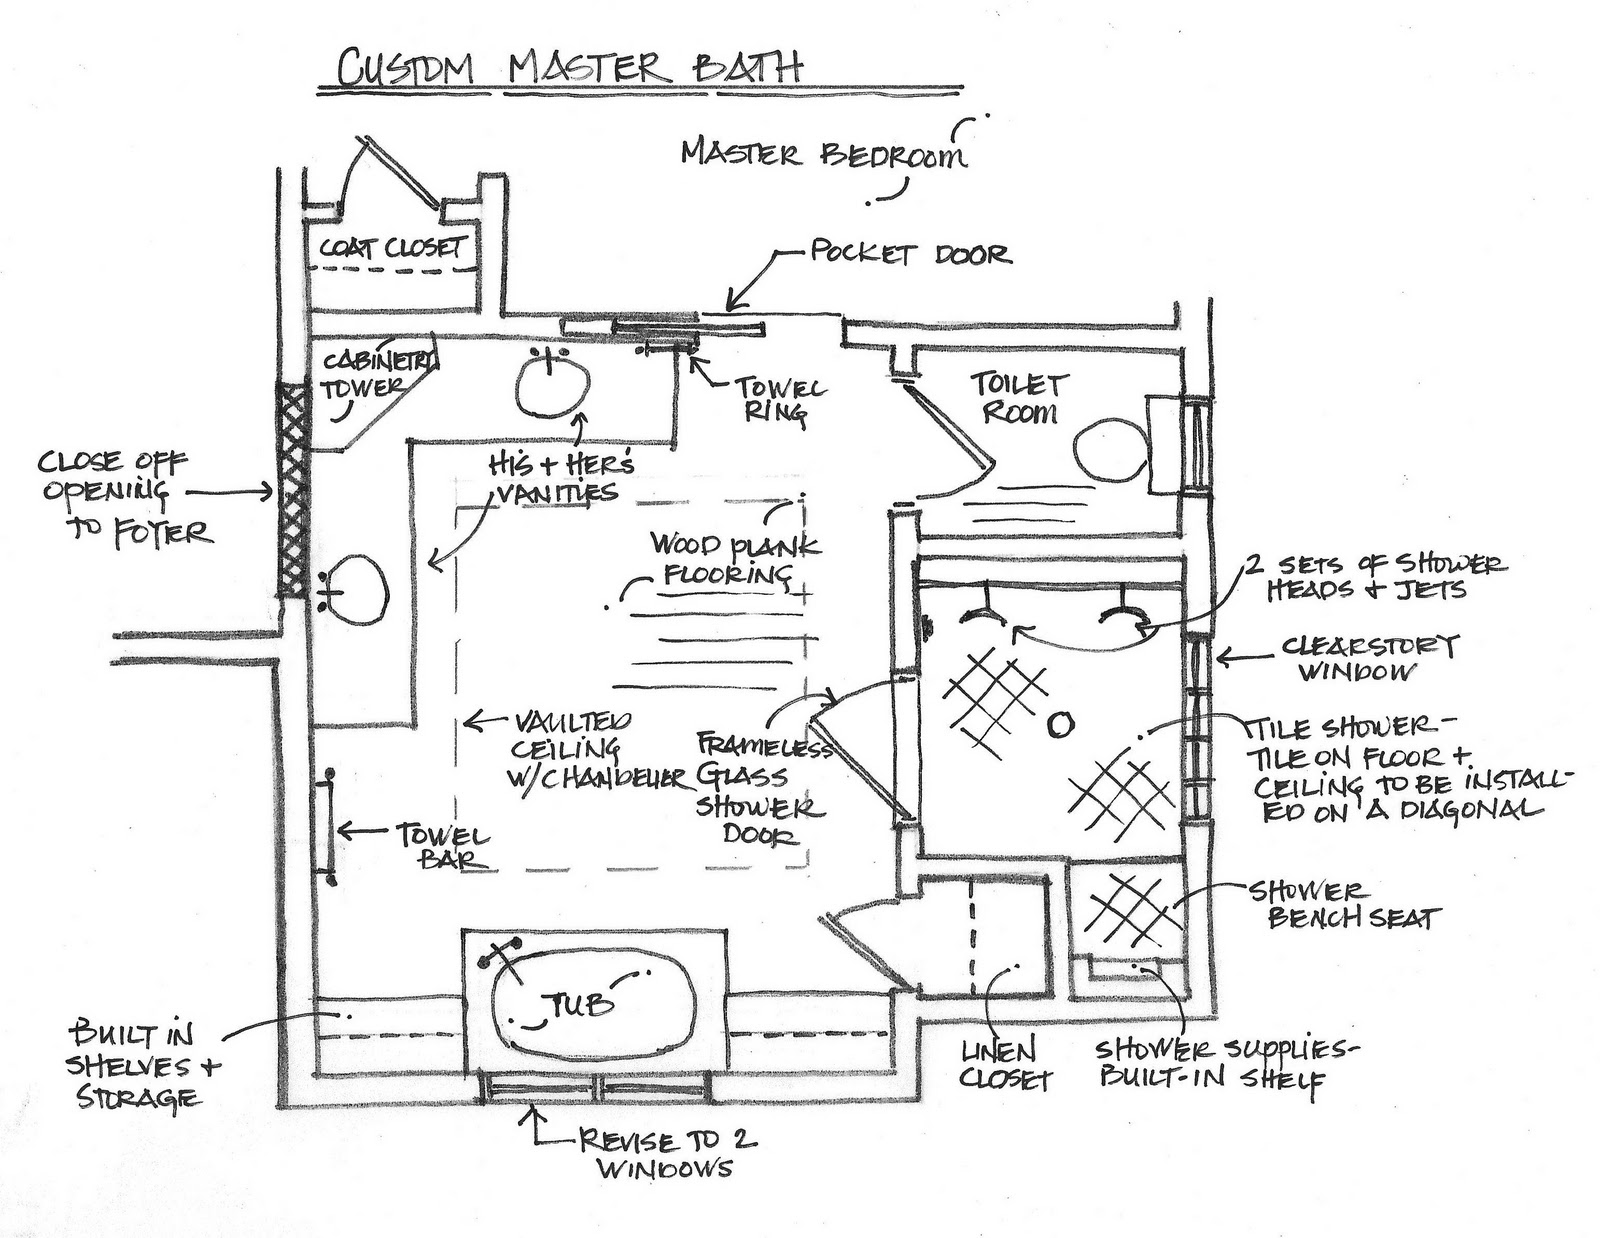 CUSTOM MASTER BATH
MASTER BEDROOM
COAT CLOSET
POCKET DOOR
CABINETRY
TOWER
TOWEL
RING
TOILET
ROOM
CLOSE OFF
OPENING
TO FOYER
HIS + HER'S
VANITIES
WOOD PLANK
FLOORING
2 SETS OF SHOWER
HEADS + JETS
CLEARSTORY
WINDOW
VAULTED
CEILING
W/CHANDELIER
FRAMELESS
GLASS
SHOWER
DOOR
TILE SHOWER-
TILE ON FLOOR +
CEILING TO BE INSTALL-
ED ON A DIAGONAL
TOWEL
BAR
SHOWER
BENCH SEAT
TUB
BUILT IN
SHELVES +
STORAGE
LINEN
CLOSET
SHOWER SUPPLIES-
BUILT-IN SHELF
REVISE TO 2
WINDOWS